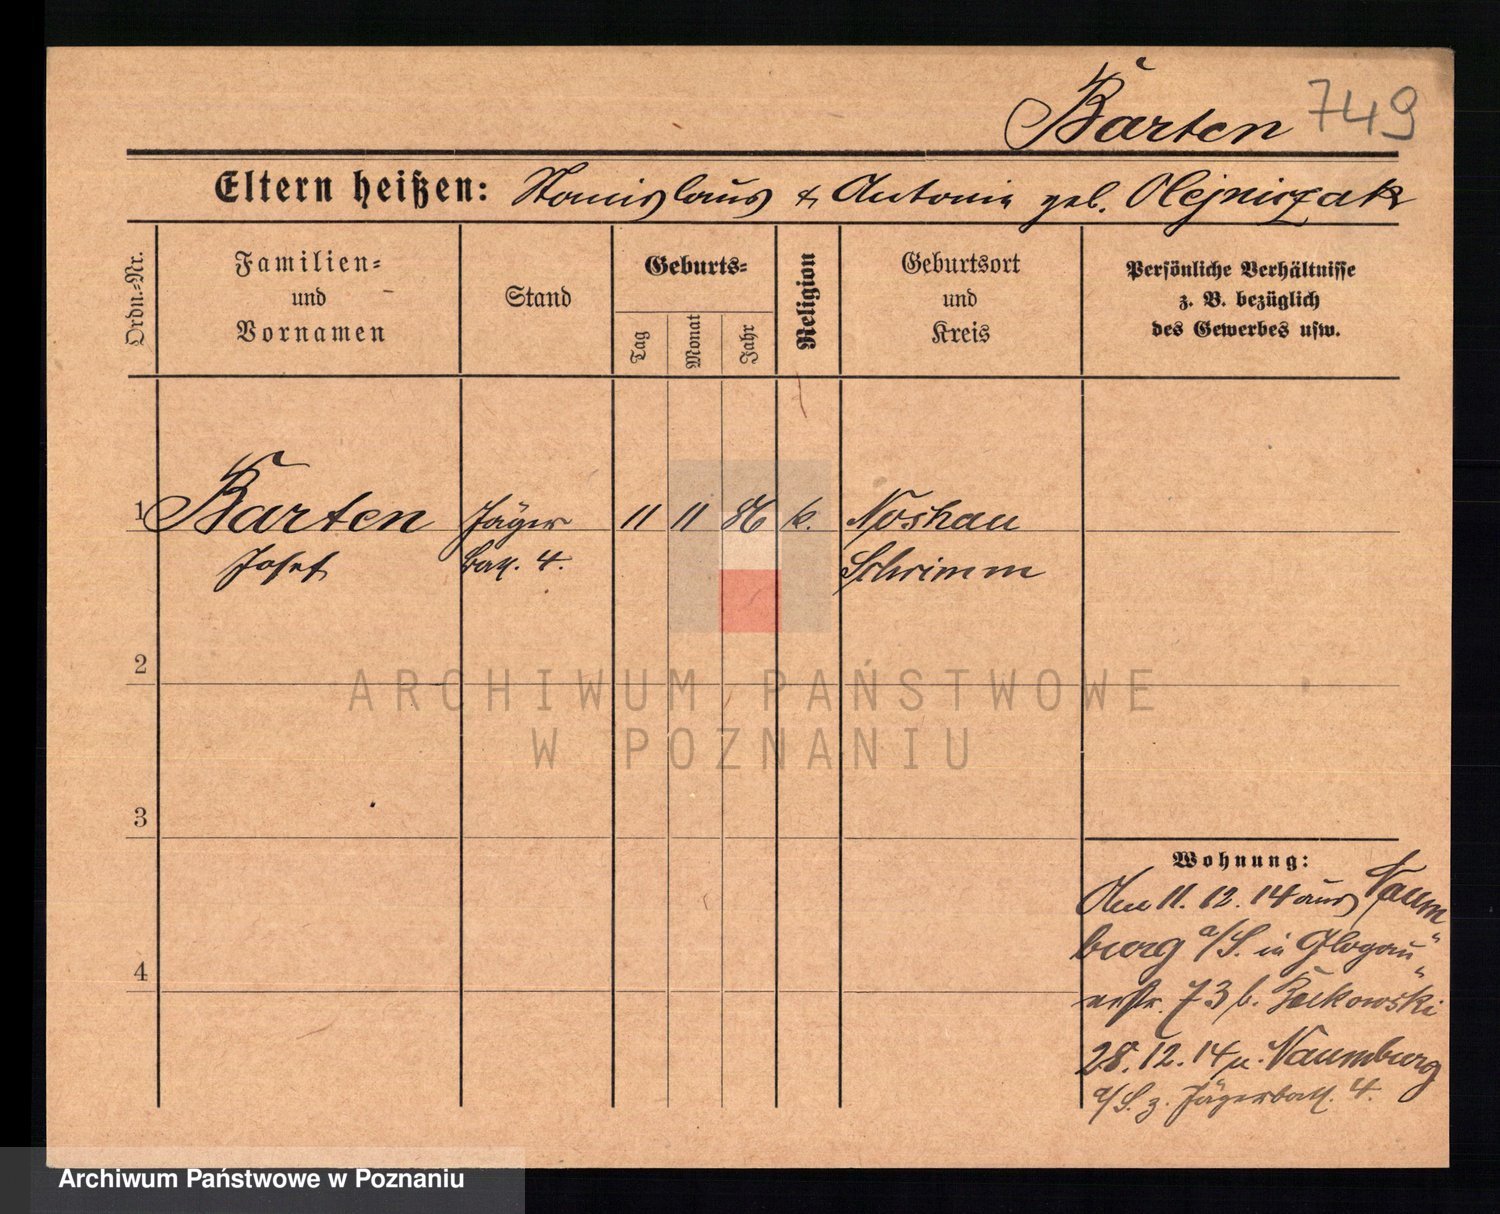 Barten 749
Eltern heißen: Stanislaus & Antonie geb. Olejniczak
Ordn.-Nr.
Familien-
und
Vornamen
Stand
Geburts-
Tag
Monat
Jahr
Religion
Geburtsort
und
Kreis
Persönliche Verhältnisse
z. B. bezüglich
des Gewerbes usw.
1 Barten Jäger 11 11 86 k. Noskau
Josef Batl. 4. Schrimm
2
ARCHIWUM PAŃSTWOWE
W POZNANIU
3
Wohnung:
Am 11. 12. 14 aus Naum
burg a/S. in Glogau"
erstr. 73 b.
4
28. 12. 14 n. Naumburg
a/S. z. Jägerbatl. 4.
Archiwum Państwowe w Poznaniu